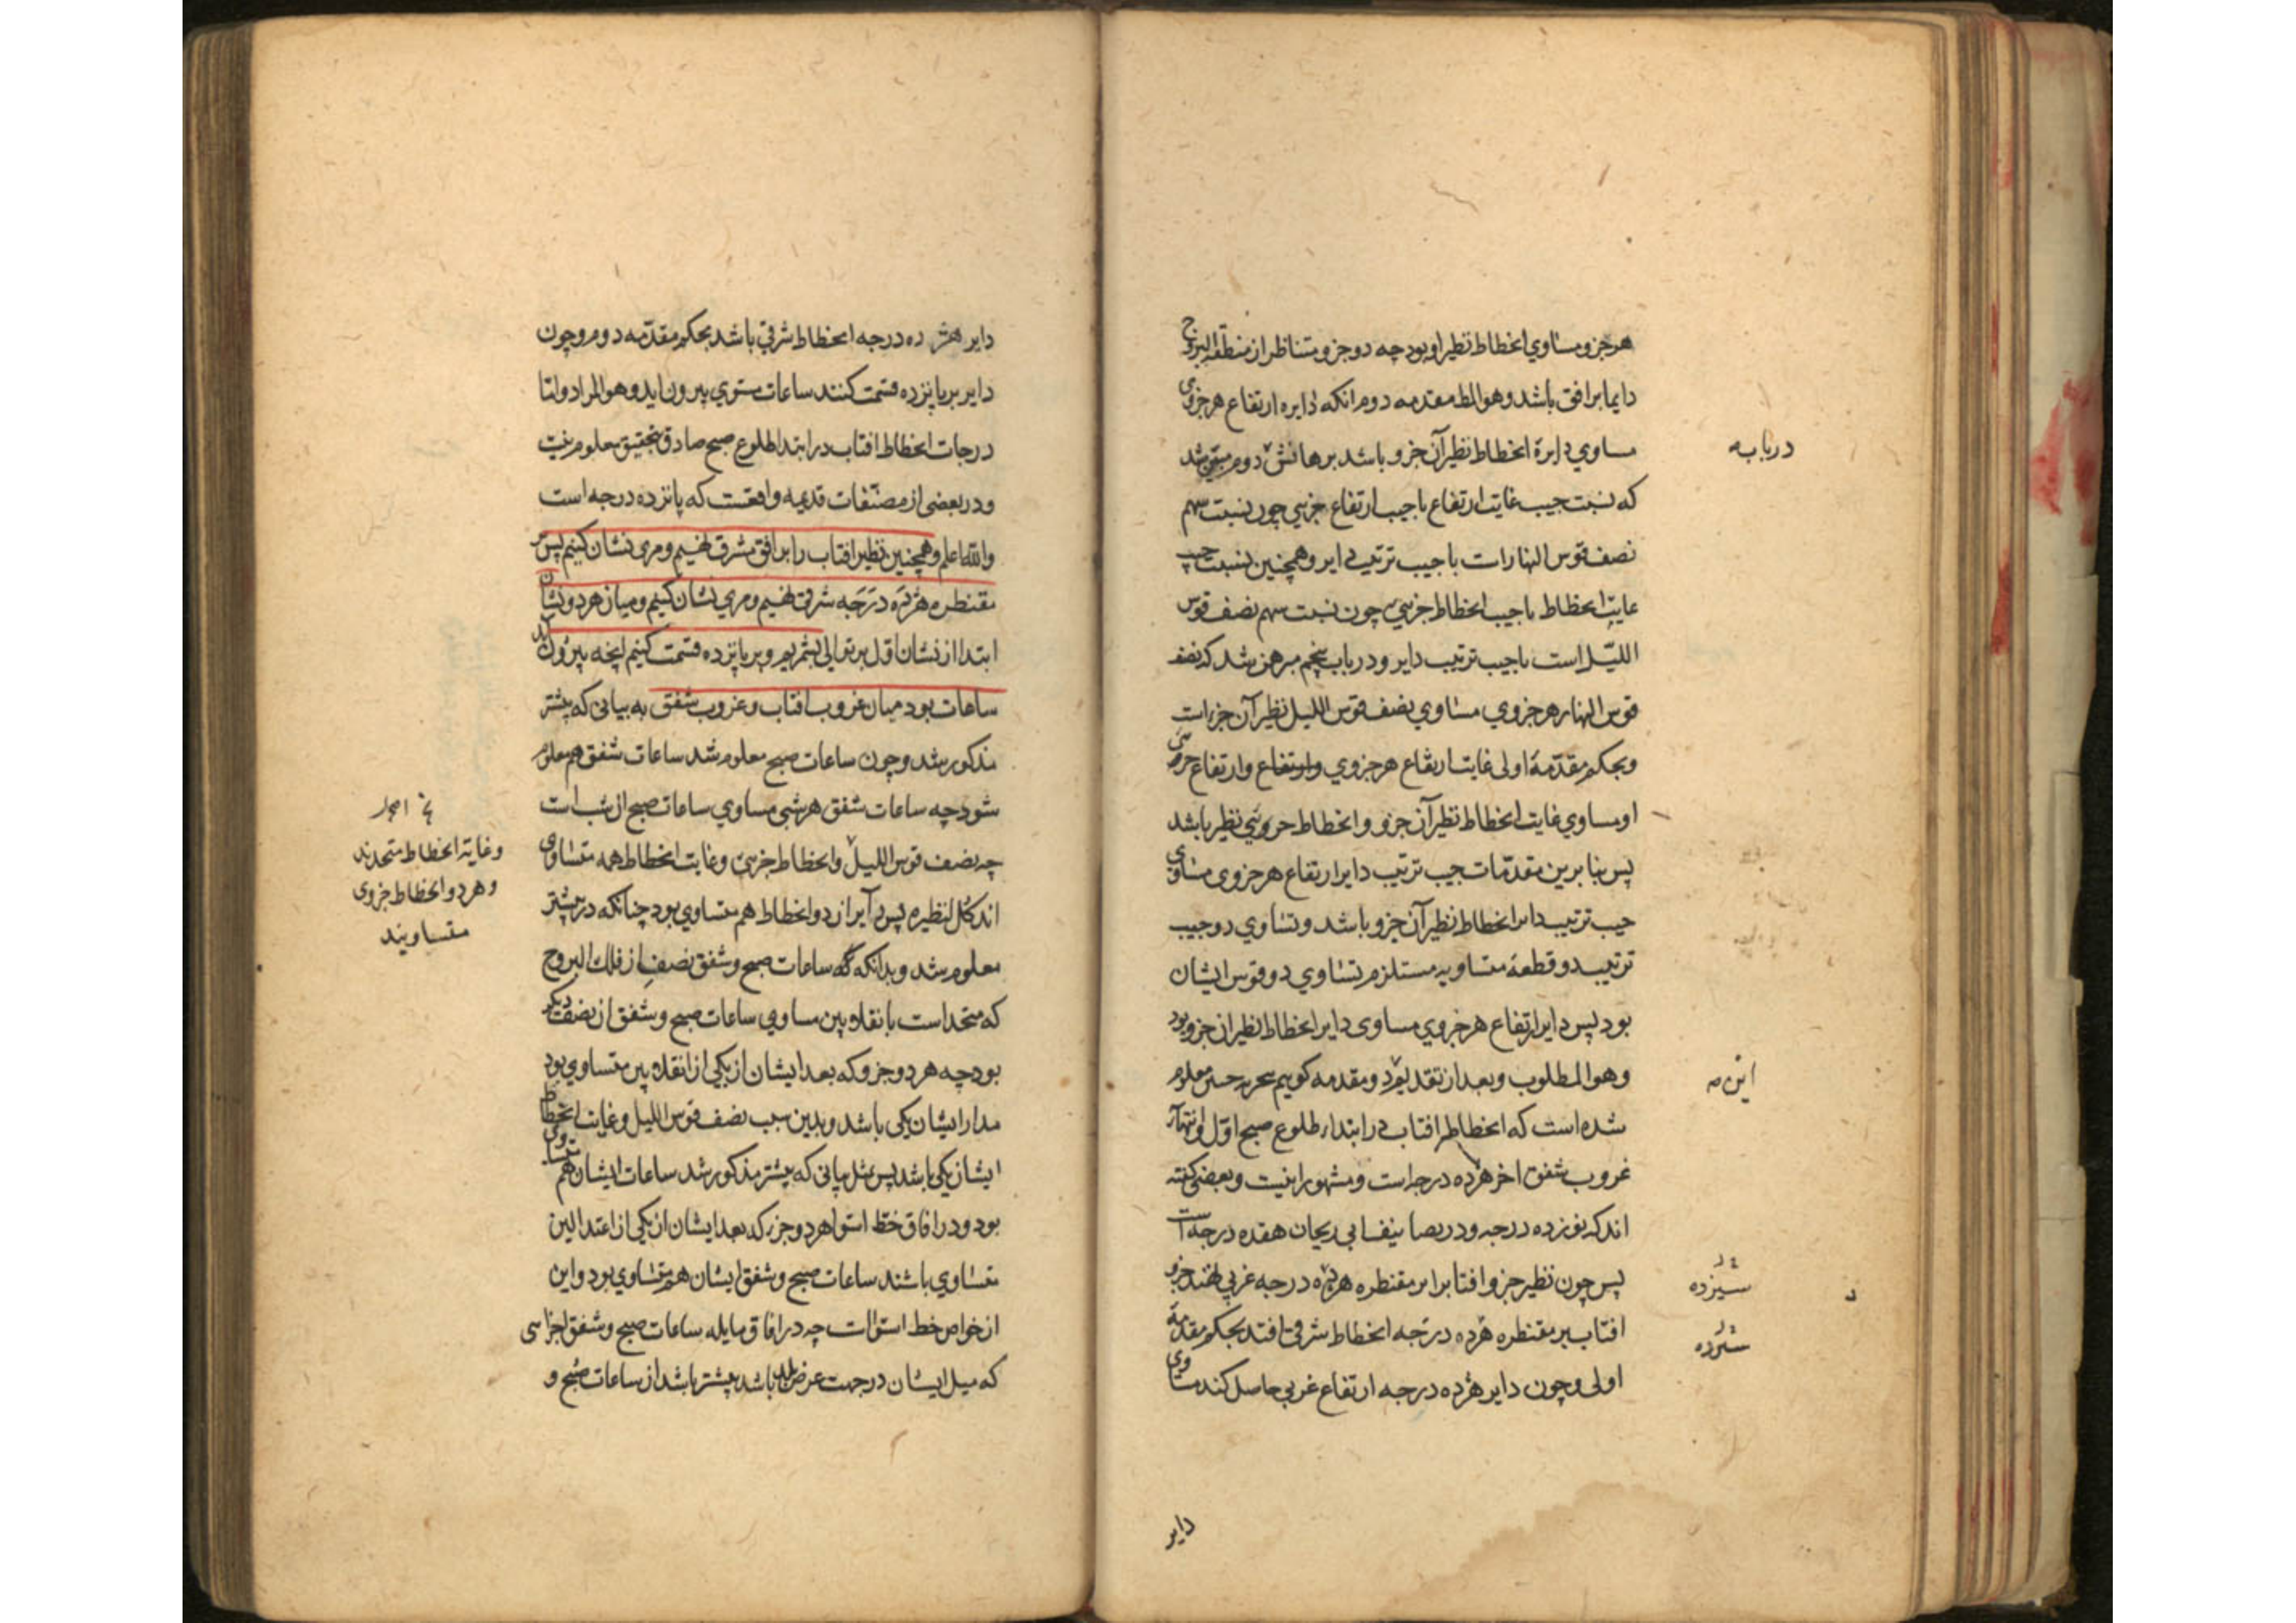 هر جزو مساوي انحطاط نظير او بود چه دو جزو متناظر از منطقة البروج
دايما بر افق باشد وهو المط مقدمه دوم انكه دايره ارتفاع هر جزوى
مساوي دايرة انحطاط نظير آن جزو باشد برهانش دوم مبين شد
كه نسبت جيب غايت ارتفاع با جيب ارتفاع جزىي چون نسبت سهم
نصف قوس النهار است با جيب ترتيب داير وهمچنين نسبت جيب
غايت انحطاط با جيب انحطاط جزىي چون نسبت سهم نصف قوس
الليل است با جيب ترتيب داير ودر باب پنجم مبرهن شد كه نصف
قوس النهار هر جزوي مساوي نصف قوس الليل نظير آن جزء است
وبحكم مقدمۀ اولى غايت ارتفاع هر جزوي وارتفاع وارتفاع جزىي
او مساوي غايت انحطاط نظير آن جزو وانحطاط جزوىي نظير باشد
پس بنا برين مقدمات جيب ترتيب داير ارتفاع هر جزوى مساوى
جيب ترتيب داير انحطاط نظير آن جزو باشد وتساوي دو جيب
ترتيب دو قطعۀ متساويه مستلزم تساوي دو قوس ايشان
بود پس داير ارتفاع هر جزوي مساوى داير انحطاط نظير ان جزو بود
وهو المطلوب وبعد از تقديم دو مقدمه كوييم بتجربه حسى معلوم
شده است كه انحطاط افتاب در ابتداء طلوع صبح اول وانتهآء
غروب شفق اخر هژده درجه است ومشهور اينست وبعضى كفته
اند كه نوزده درجه ودر تصانيف ابى ريحان هفده درجه است
پس چون نظير جزو افتاب را بر مقنطره هژده درجه غربي نهند جزو
افتاب بر مقنطره هژده درجه انحطاط شرقى افتد بحكم مقدمۀ
اولى وچون داير هژده درجه ارتفاع غربي حاصل كنند مساوى
در بابه
اين مه
شيزده
شزده
داير
داير هژده درجه انحطاط شرقي باشد بحكم مقدمه دوم وچون
داير بر پانزده قسمت كنند ساعات مستوي بيرون ايد وهو المراد واما
درجات انحطاط افتاب در ابتدا طلوع صبح صادق بتحقيق معلوم نيست
ودر بعضى از مصنفات قديمه واقعست كه پانزده درجه است
والله اعلم وهمچنين نظير افتاب را بر افق مشرق نهيم ومرى نشان كنيم پس بر
مقنطره هژده درجه شرقى نهيم ومري نشان كنيم وميان هر دو نشان
ابتدا از نشان اول بر توالى بشمريم وبر پانزده قسمت كنيم انچه بيرون آيد
ساعات بود ميان غروب افتاب وغروب شفق به بيانى كه پيشتر
مذكور شد وچون ساعات صبح معلوم شد ساعات شفق هم معلوم
شود چه ساعات شفق هر شبى مساوي ساعات صبح ان شب است
چه نصف قوس الليل وانحطاط جزىى وغايت انحطاط همه متساوى
اند كل لنظيره پس داير ان دو انحطاط هم متساوي بود چنانكه در پيشتر
معلوم شد وبدانكه كه ساعات صبح وشفق نصفى از فلك البروج
كه متحد است بانقلابين مساوي ساعات صبح وشفق از نصف ديكر
بود چه هر دو جزو كه بعد ايشان از يكي از انقلابين متساوي بود
مدار ايشان يكى باشد وبدين سبب نصف قوس الليل وغايت انحطاط
ايشان يكى باشد پس بمثل بيانى كه پيشتر مذكور شد ساعات ايشان هم متساوى
بود ودر افاق خط استوا هر دو جزء كه بعد ايشان از يكي از اعتدالين
متساوي باشند ساعات صبح وشفق ايشان هم متساوي بود واين
از خواص خط استواست چه در افاق مايله ساعات صبح وشفق اجزائى
كه ميل ايشان در جهت عرض بلد باشد بيشتر باشد از ساعات صبح و
وغاية انحطاط متحدند
وهر دو انحطاط جزوى
متساويند